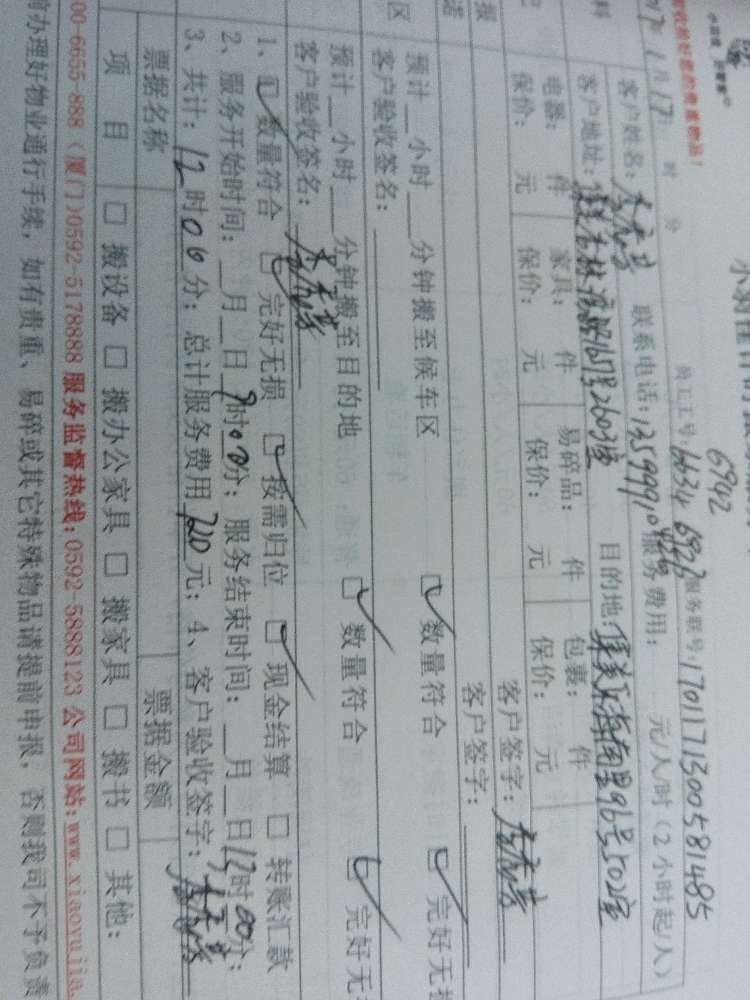 验收好您的贵重物品!
小羽佳
6942
员工工号: 6634 6923 服务联号: 17011713005814​85
1月17日 时 分
客户姓名: 联系电话: 服务费用: 元/人/时 (2小时起/人)
客户地址: 杏林 167号2603室 目的地: 集美区 海南里96号502室
电器: 件 家具: 件 易碎品: 件 包裹: 件
保价: 元 保价: 元 保价: 元 保价: 元
客户签字:
客户签字:
预计__小时__分钟搬至候车区 数量符合 完好无损
客户验收签名:
预计__小时__分钟搬至目的地 数量符合 完好无
客户验收签名:
1、 数量符合 完好无损 按需归位 现金结算 转账汇款
2、服务开始时间: __月__日 9时00分; 服务结束时间: __月__日 12时00分;
3、共计: 12时06分; 总计服务费用 720元; 4、客户验收签字:
票据名称 票据金额
项 目 搬设备 搬办公家具 搬家具 搬书 其他:
00-6655-888 (厦门)0592-5178888 服务监督热线: 0592-5888123 公司网站: www.xiaoyujia.
前办理好物业通行手续, 如有贵重、易碎或其它特殊物品请提前申报, 否则我司不予负责